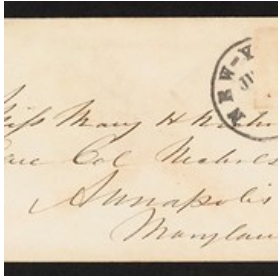 NEW-Y
JU
Miss Mary H
Care Col Nichols
Annapolis
Marylan